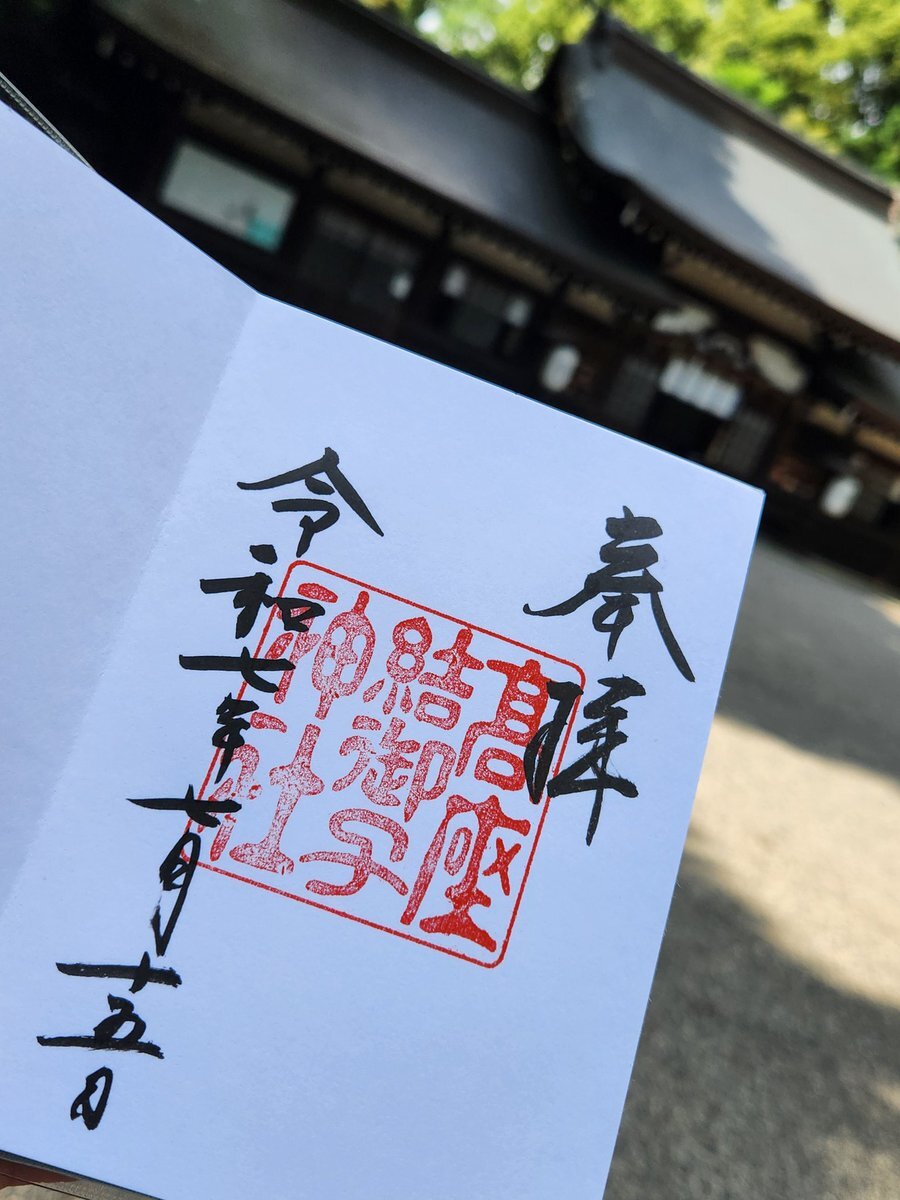 奉拝
髙座
結御子
神社
令和七年七月十五日